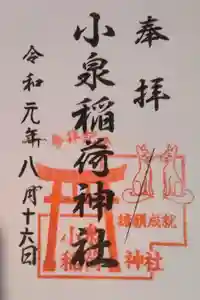 奉拝
小泉稲荷神社
令和元年八月十六日
諸願成就
小泉
稲荷
神社